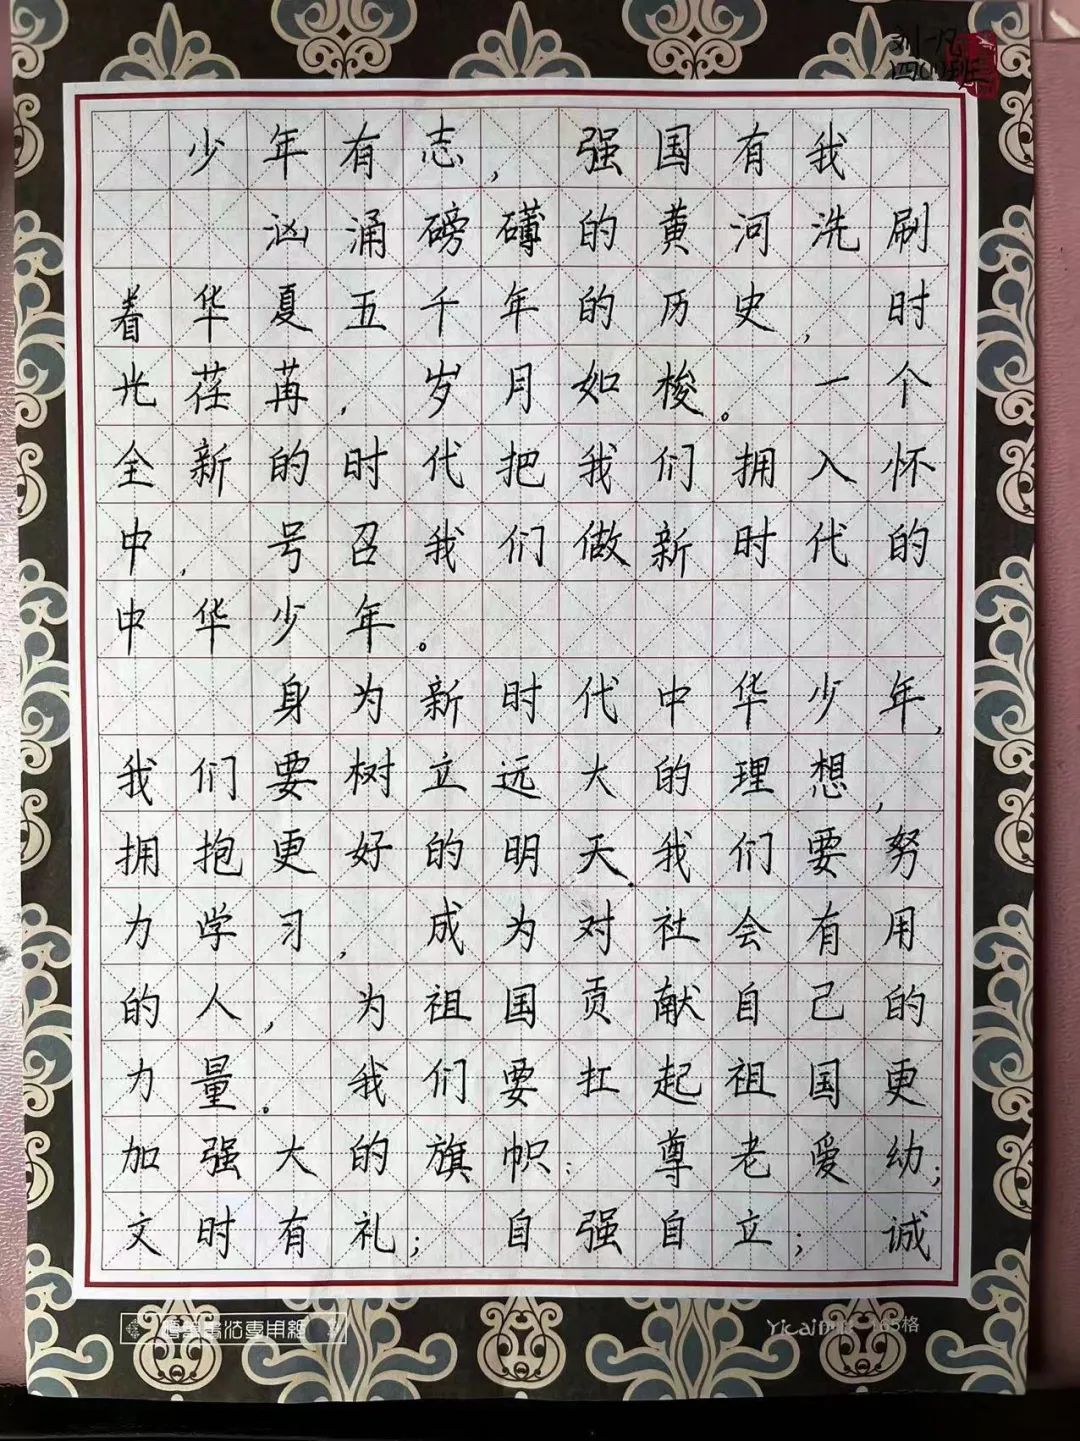 刘一凡
四(1)班
少年有志，强国有我
汹涌磅礴的黄河洗刷
着华夏五千年的历史，时
光荏苒，岁月如梭。一个
全新的时代把我们拥入怀
中，号召我们做新时代的
中华少年。
身为新时代中华少年，
我们要树立远大的理想，
拥抱更好的明天.我们要努
力学习，成为对社会有用
的人，为祖国贡献自己的
力量.我们要扛起祖国更
加强大的旗帜；尊老爱幼；
文时有礼；自强自立；诚
书法专用纸
Yicai 165格